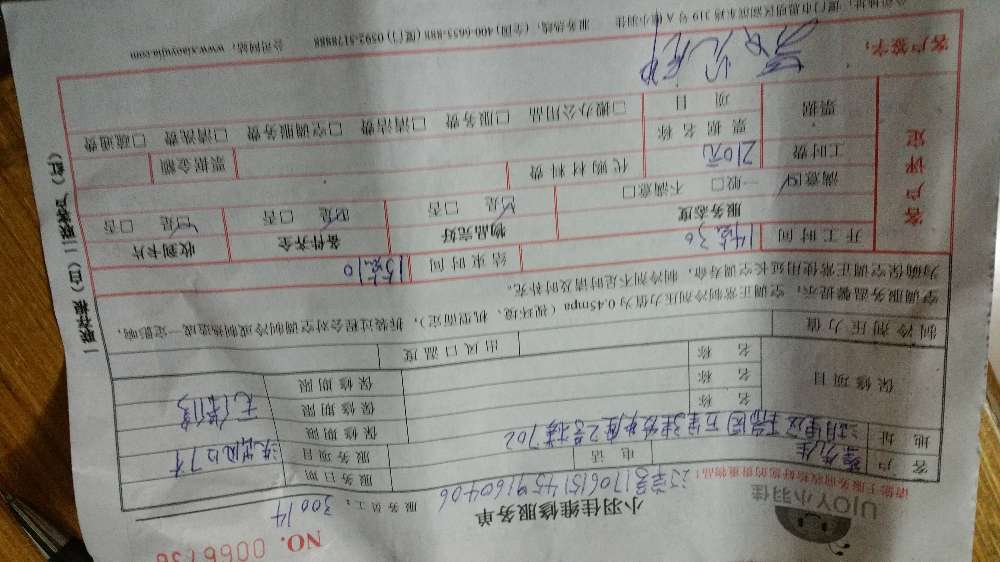 NO. 0066736
UJOY小羽佳
小羽佳维修服务单
服务员工: 30014
请您于服务前收拾好您的贵重物品!
1706151459160406
客户
电话
服务日期
地址
服务项目
702
保修项目
名称
保修期限
无保修
名称
保修期限
名称
保修期限
制冷剂压力值
出风口温度
空调服务温馨提示: 空调正常制冷剂压力值为0.45mpa(视环境、机型而定), 拆装过程会对空调制冷或制热造成一定影响,
为确保空调正常使用延长空调寿命, 制冷剂不足时请及时补充。
客户评定
开工时间 14点30
结束时间 15点10
服务态度
物品完好
备件齐全
收到卡片
满意☑ 一般□ 不满意□
☑是 □否
☑是 □否
☑是 □否
工时费 210元
代购材料费
票据金额
票据
票据名称
项目
□搬办公用品 □服务费 □清洁费 □空调服务费 □清洗费 □疏通费
客户签字:
公司地址: 厦门市思明区湖滨东路319号A 服务热线: (全国) 400-6655-888 (厦门) 0592-5178888 公司网站: www.xiaoyujia.com
一联存根(白)二联客户(红)